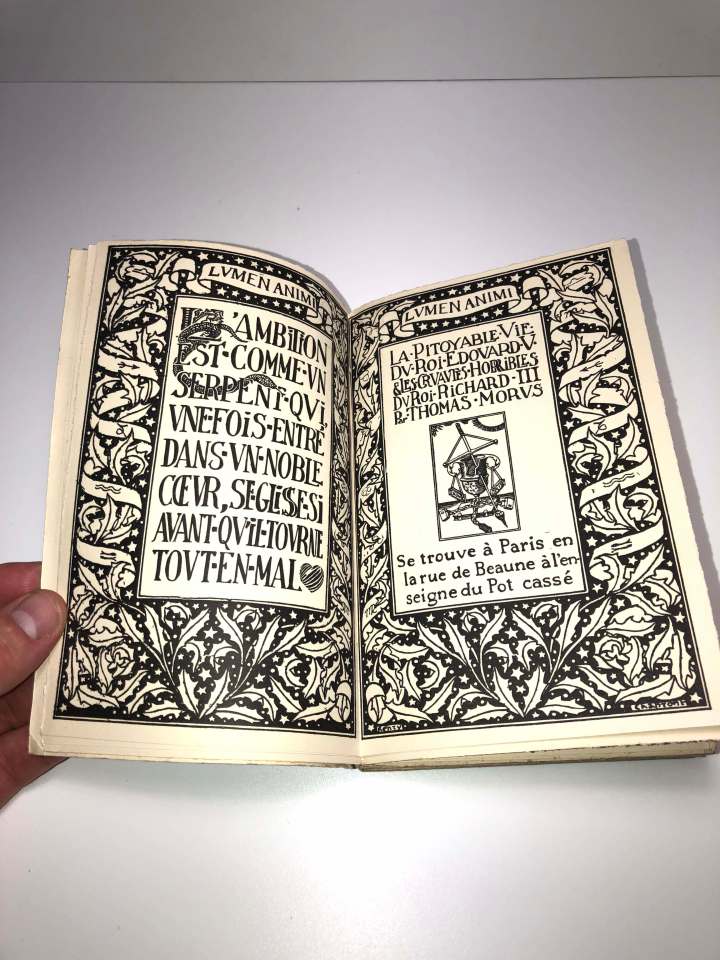 LVMEN ANIMI
L'AMBITION
EST·COMME·VN
SERPENT·QVI,
VNE·FOIS·ENTRE
DANS·VN·NOBLE
CŒVR, SE·GLISSE·SI
AVANT·QV'IL·TOVRNE
TOVT·EN·MAL
LVMEN ANIMI
LA·PITOYABLE·VIE
DV·ROI·EDOVARD·V
&·LES·CRVAVTES·HORRIBLES
DV·ROI·RICHARD·III
PR·THOMAS·MORVS
Se trouve à Paris en
la rue de Beaune à l'en-
seigne du Pot cassé